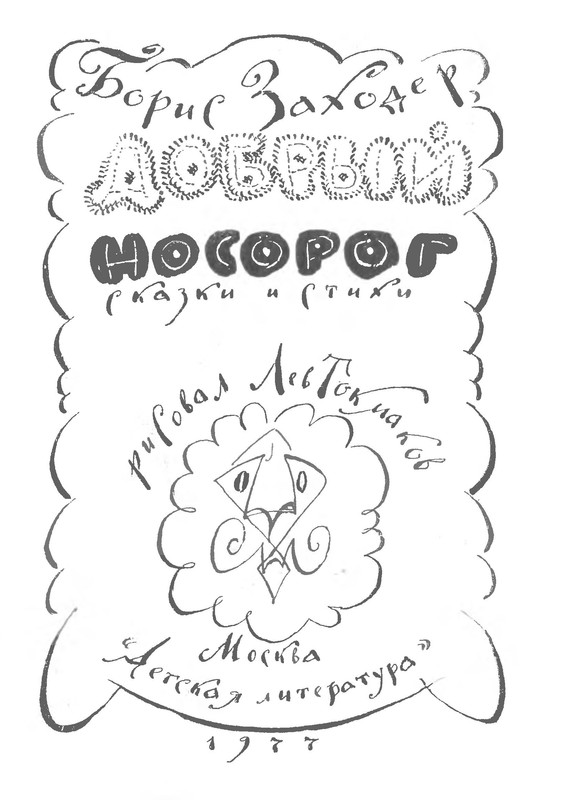 Борис Заходер
ДОБРЫЙ
НОСОРОГ
сказки и стихи
рисовал Лев Токмаков
Москва
"Детская литература"
1977